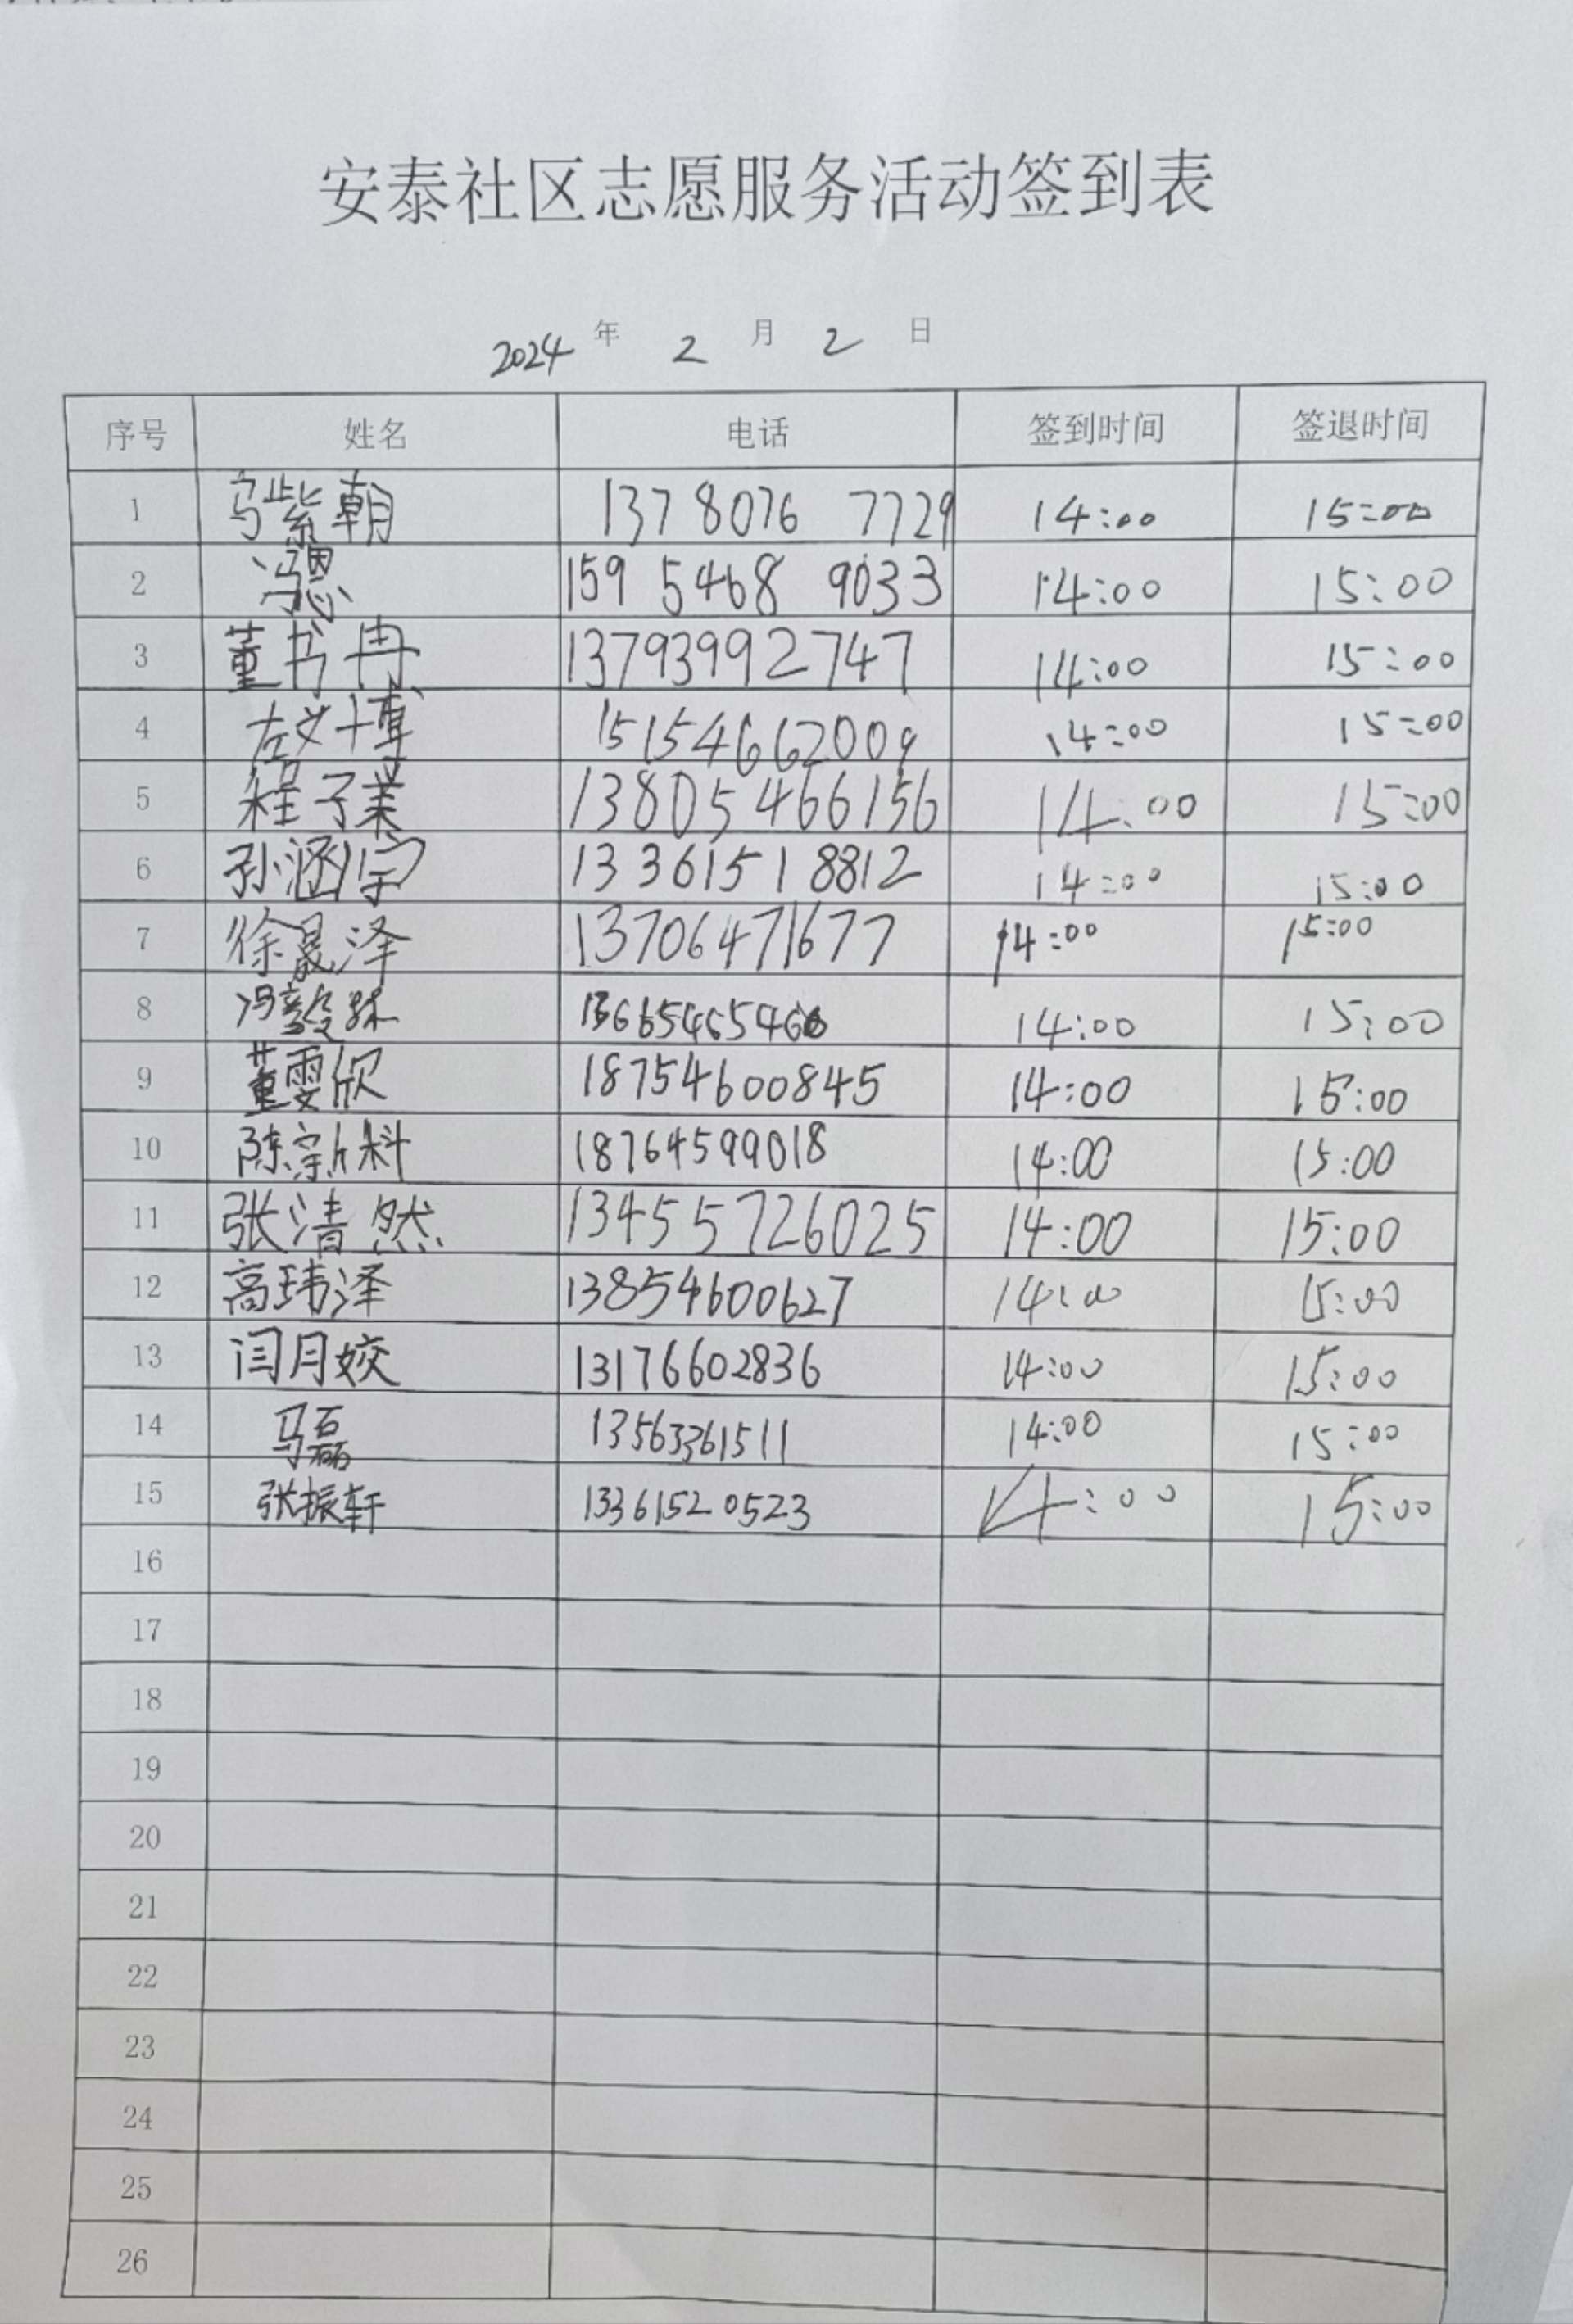 安泰社区志愿服务活动签到表
2024 年 2 月 2 日
序号 姓名 电话 签到时间 签退时间
1 紫朝 137 8076 7729 14:00 15:00
2 冯恩 159 5468 9033 14:00 15:00
3 董书冉 13793992747 14:00 15:00
4 左博 15154662009 14:00 15:00
5 程子业 13805466156 14:00 15:00
6 孙涵宇 13361518812 14:00 15:00
7 徐晟泽 13706471677 14:00 15:00
8 冯 13665465460 14:00 15:00
9 董雯欣 18754600845 14:00 15:00
10 陈 18764599018 14:00 15:00
11 张清然 13455726025 14:00 15:00
12 高玮泽 13854600627 14:00 15:00
13 闫月姣 13176602836 14:00 15:00
14 马磊 13563361511 14:00 15:00
15 张振轩 13361520523 14:00 15:00
16
17
18
19
20
21
22
23
24
25
26